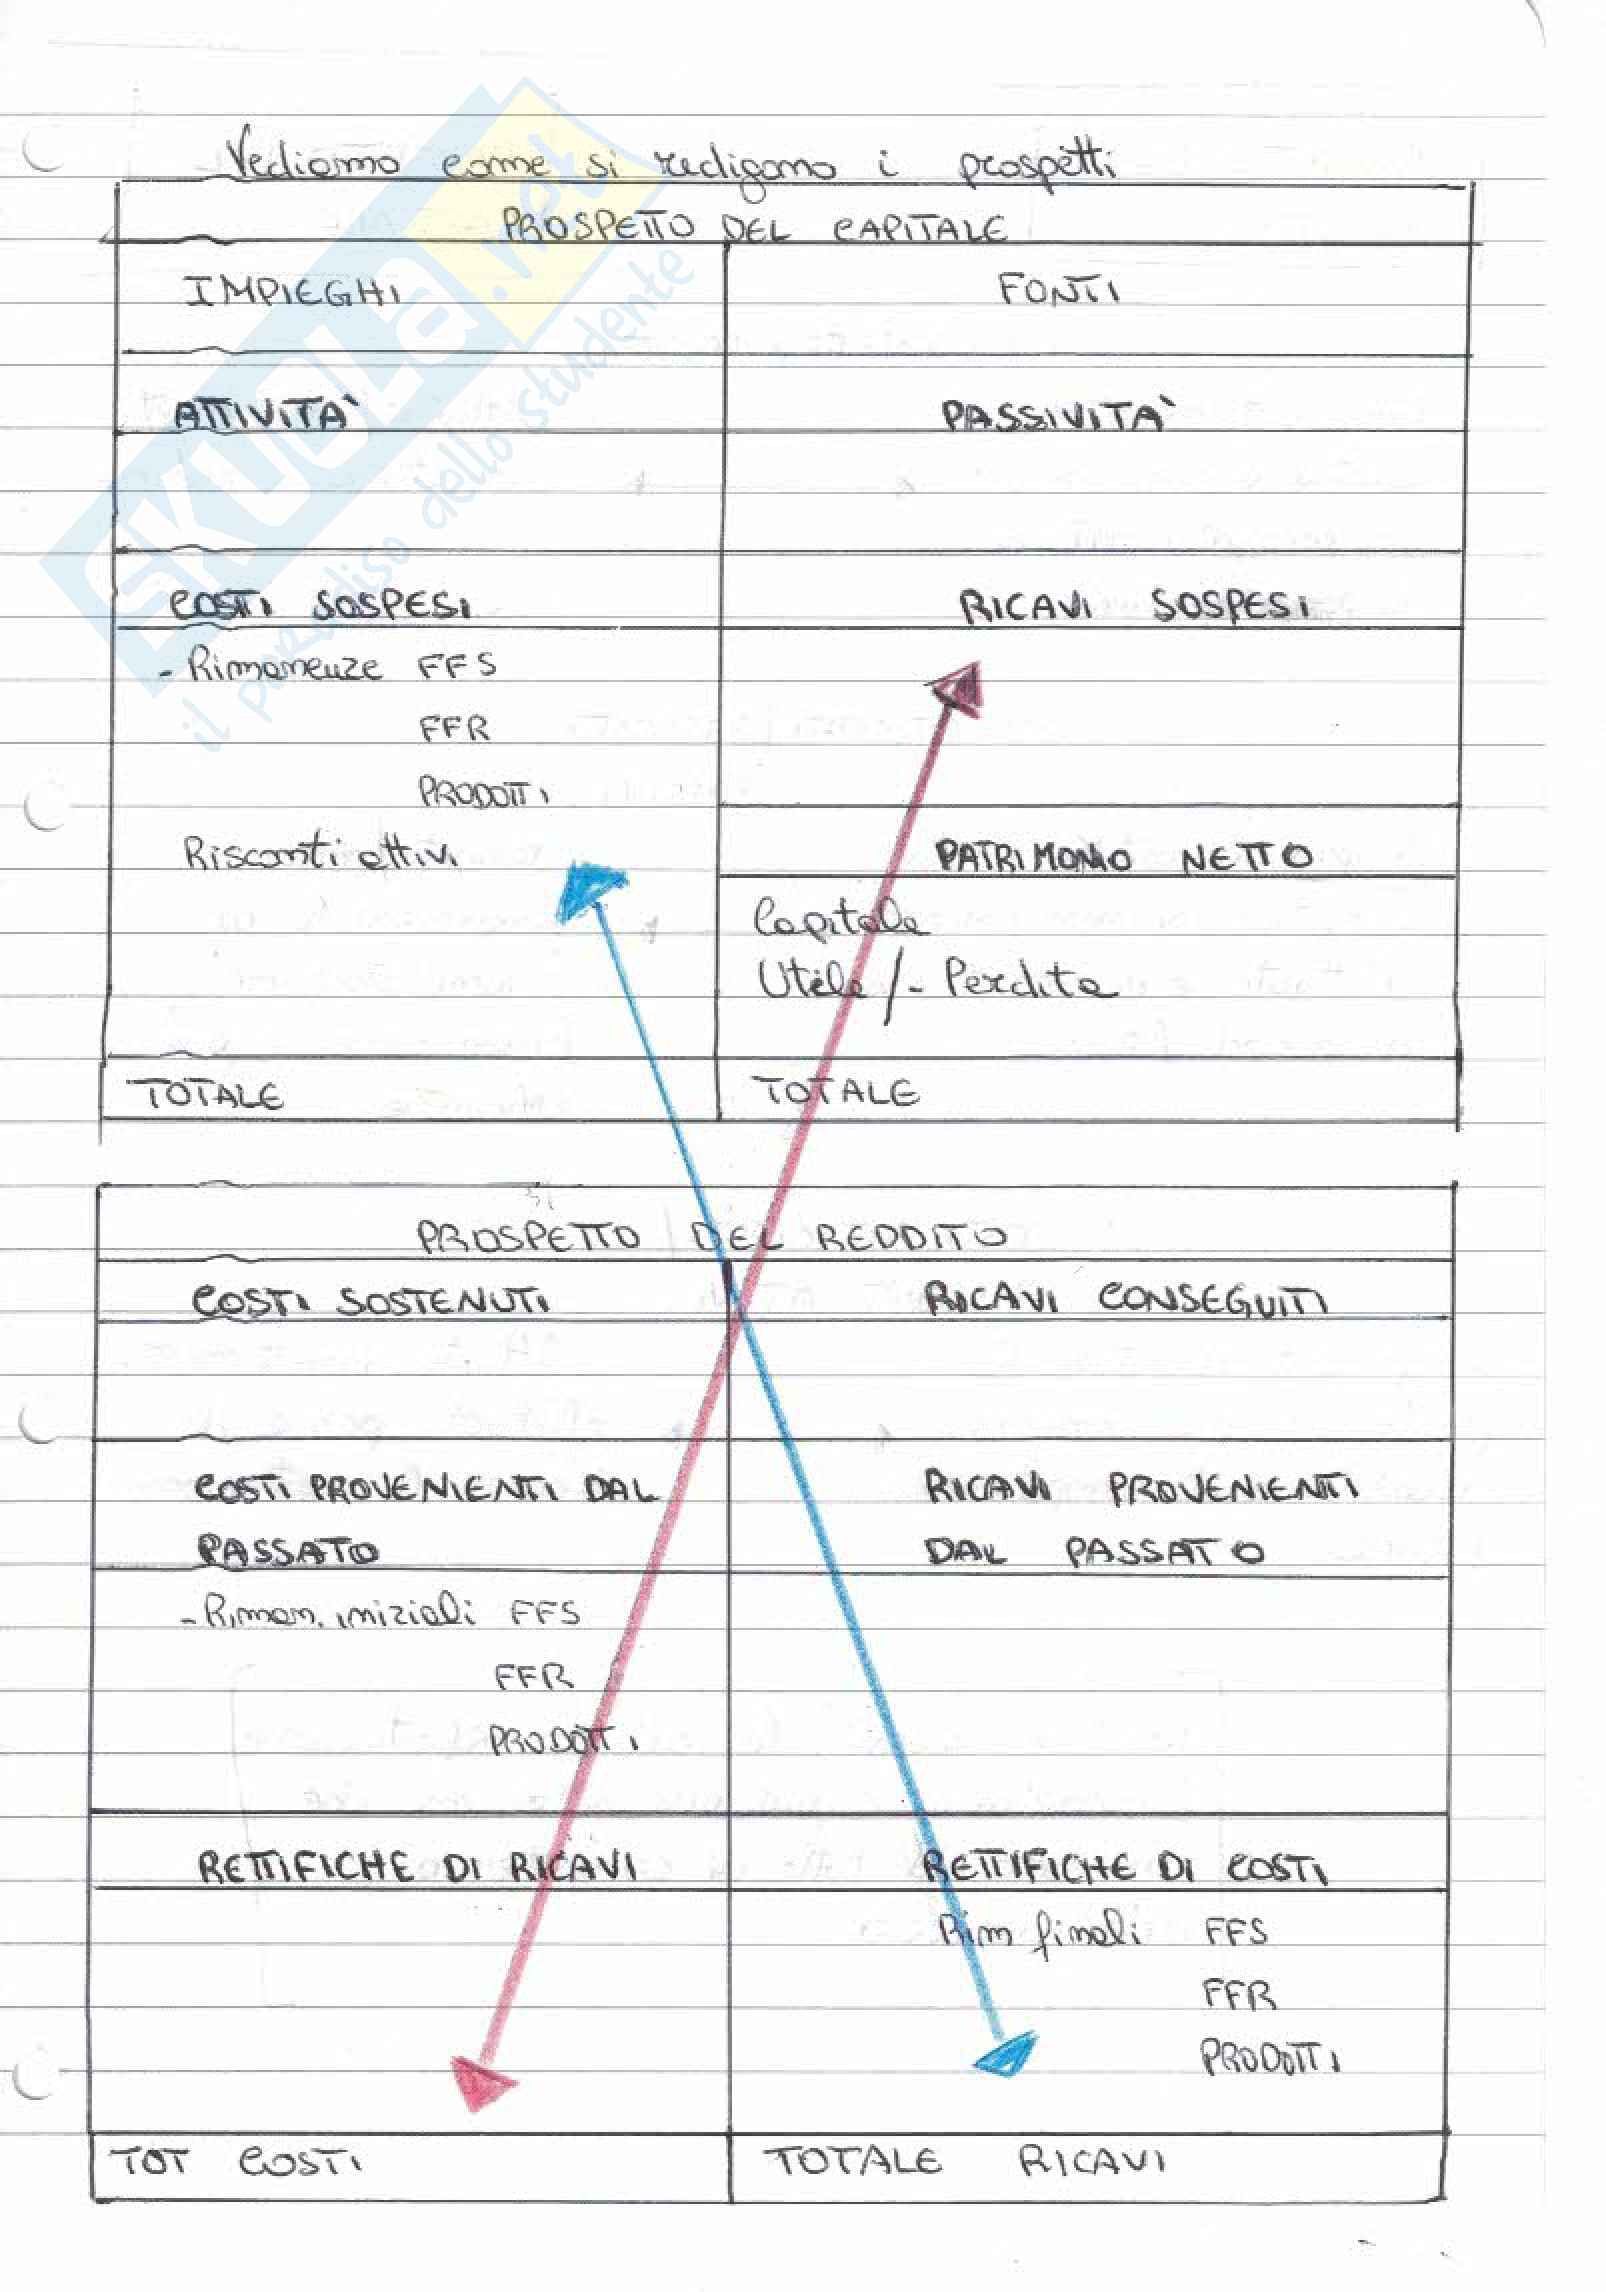 Vediamo come si redigono i prospetti
PROSPETTO DEL CAPITALE
IMPIEGHI FONTI
ATTIVITA' PASSIVITA'
COSTI SOSPESI RICAVI SOSPESI
- Rimanenze FFS
FFR
PRODOTTI
Risconti attivi PATRIMONIO NETTO
Capitale
Utile /- Perdita
TOTALE TOTALE
PROSPETTO DEL REDDITO
COSTI SOSTENUTI RICAVI CONSEGUITI
COSTI PROVENIENTI DAL RICAVI PROVENIENTI
PASSATO DAL PASSATO
- Riman. iniziali FFS
FFR
PRODOTTI
RETTIFICHE DI RICAVI RETTIFICHE DI COSTI
Rim finali FFS
FFR
PRODOTTI
TOT COSTI TOTALE RICAVI
SKUOLA.net
il paradiso dello studente